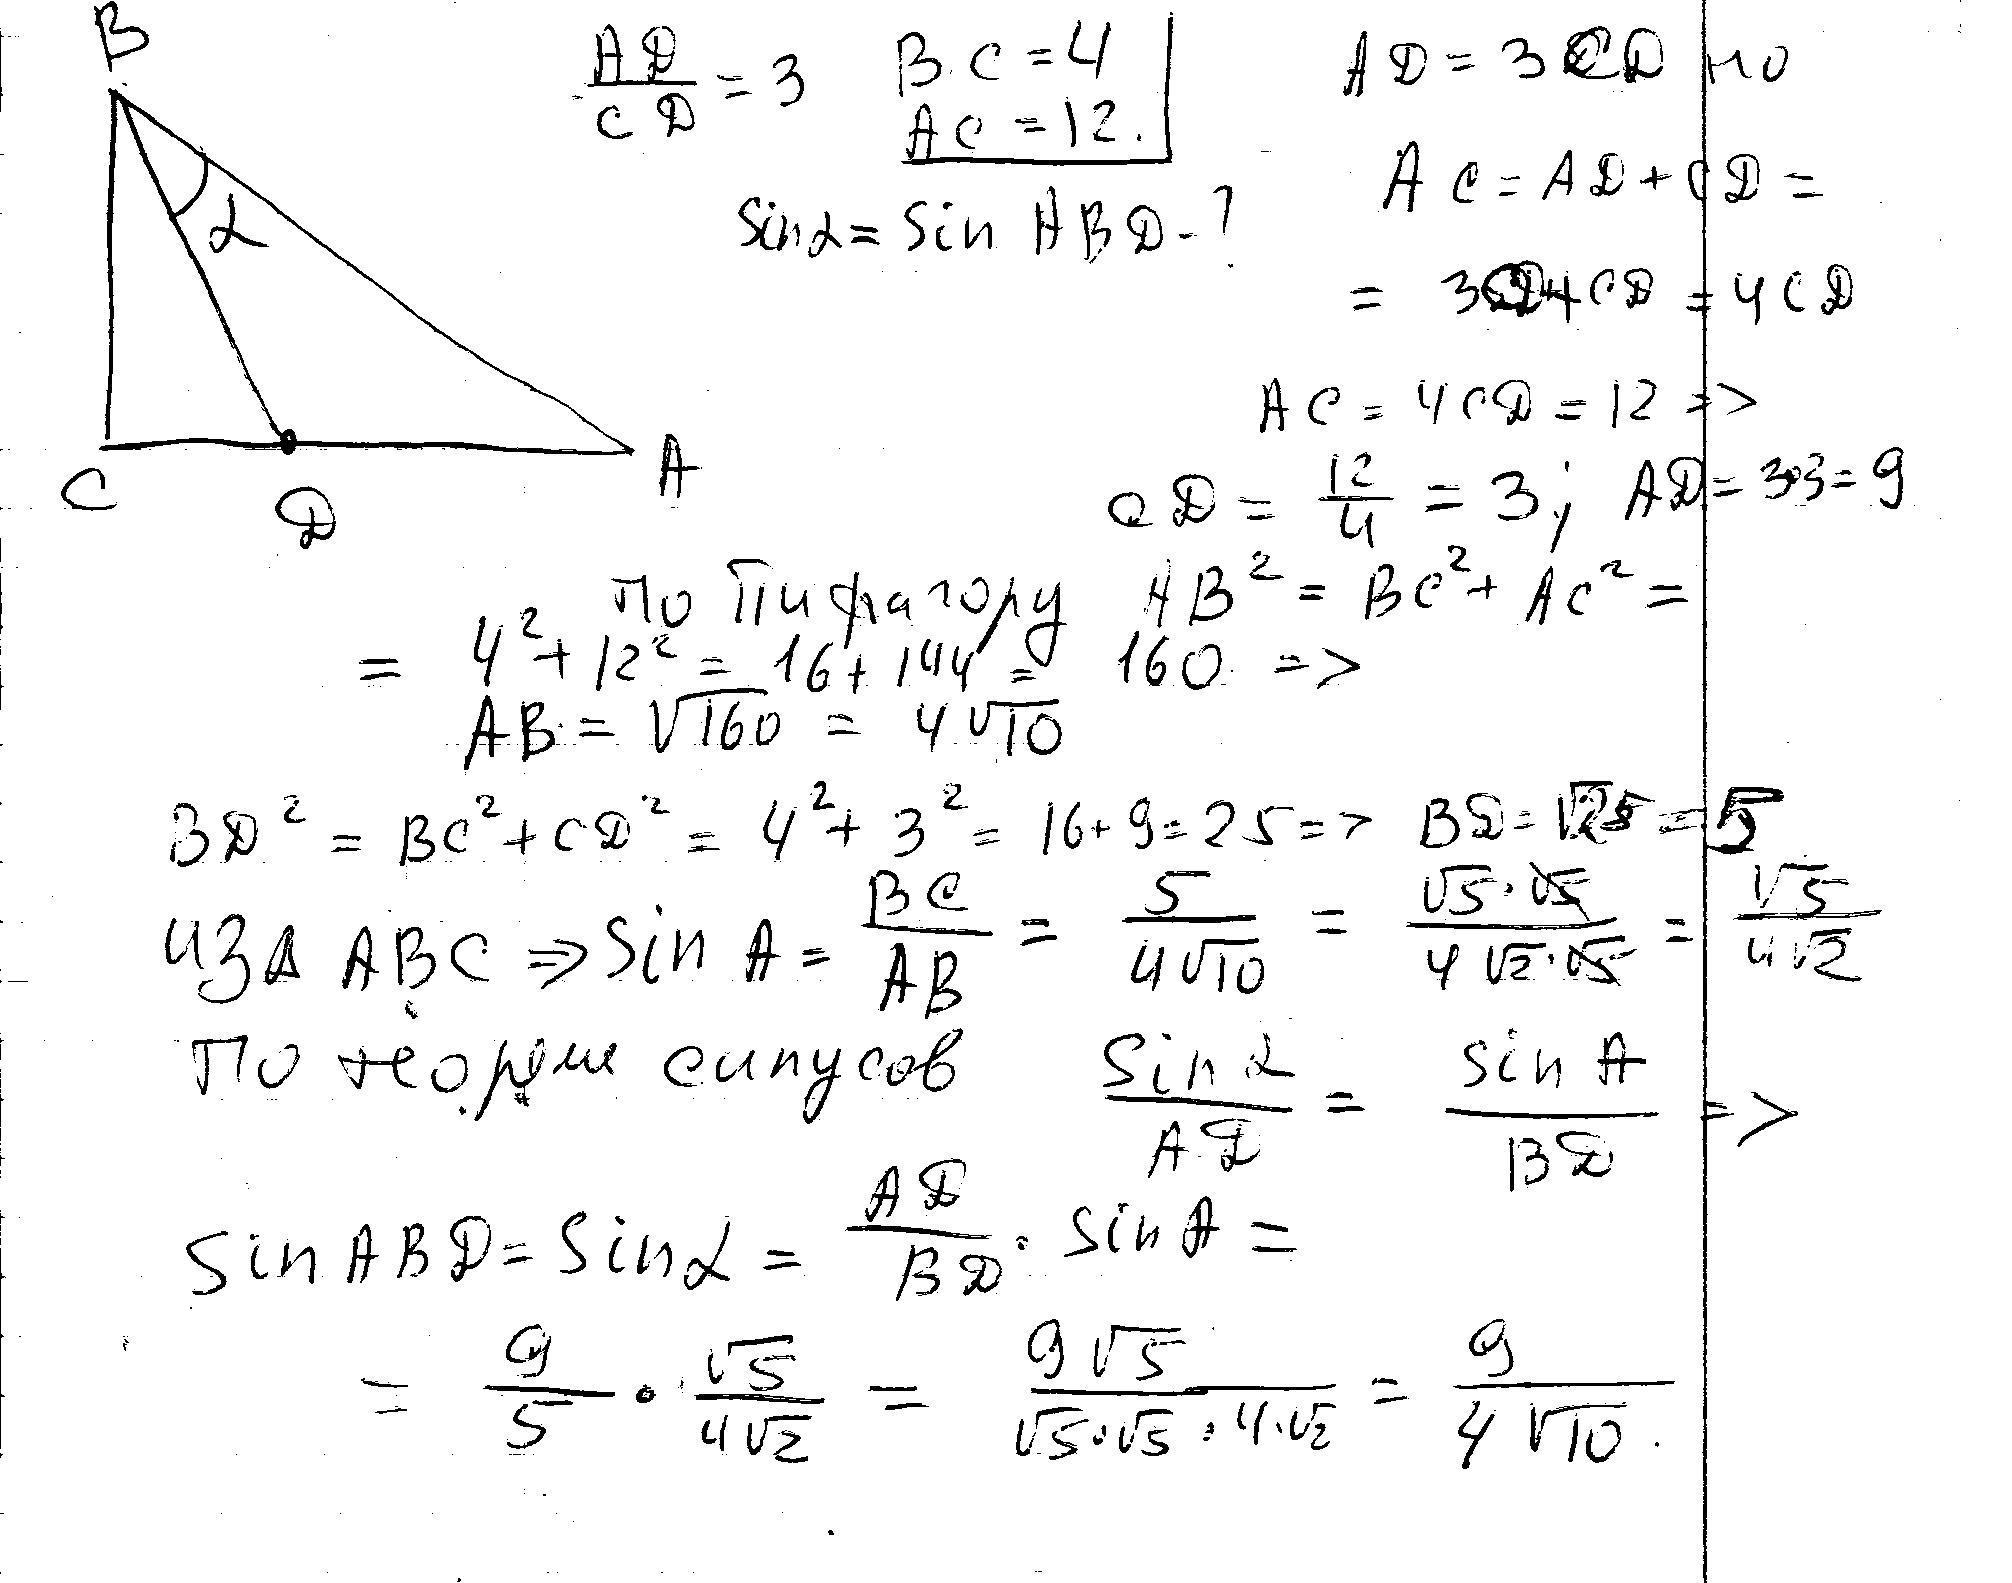 B
AD/CD = 3
BC = 4
AC = 12.
sinα = sin ABD - ?
α
C
D
A
AD = 3CD но
AC = AD + CD =
= 3CD + CD = 4CD
AC = 4CD = 12 =>
CD = 12/4 = 3; AD = 3·3 = 9
по Пифагору AB² = BC² + AC² =
= 4² + 12² = 16 + 144 = 160 =>
AB = √160 = 4√10
BD² = BC² + CD² = 4² + 3² = 16 + 9 = 25 => BD = √25 = 5
из Δ ABC => sin A = BC/AB = 5/4√10 = √5·√5/4√2·√5 = √5/4√2
По теореме синусов sinα/AD = sin A/BD =>
sin ABD = sinα = AD/BD · sin A =
= 9/5 · √5/4√2 = 9√5/√5·√5·4·√2 = 9/4√10.